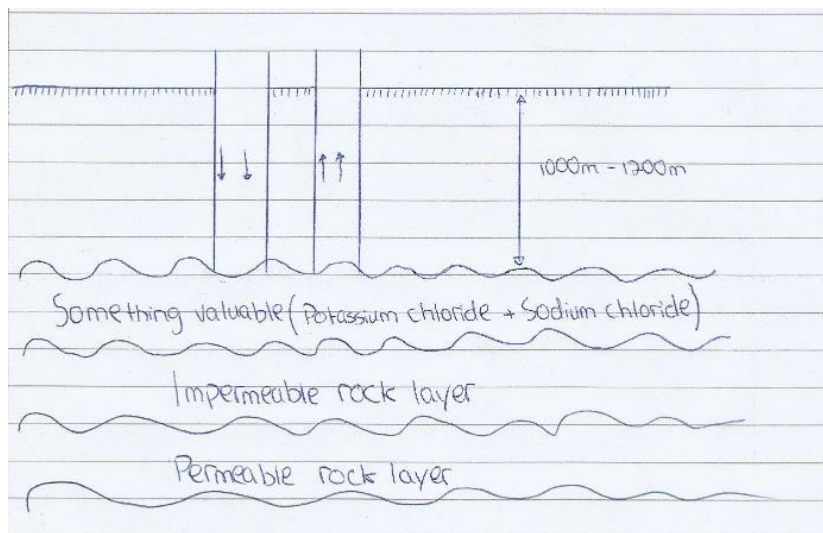 1000m - 1200m
Something valuable (Potassium chloride + Sodium chloride)
Impermeable rock layer
Permeable rock layer